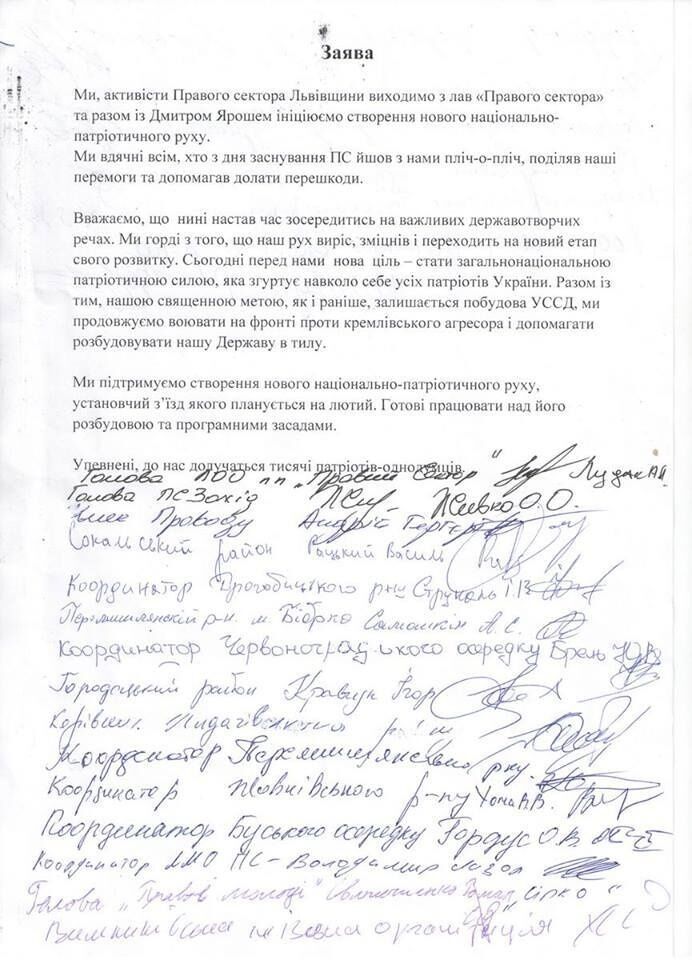 Заява
Ми, активісти Правого сектора Львівщини виходимо з лав «Правого сектора»
та разом із Дмитром Ярошем ініціюємо створення нового національно-
патріотичного руху.
Ми вдячні всім, хто з дня заснування ПС йшов з нами пліч-о-пліч, поділяв наші
перемоги та допомагав долати перешкоди.
Вважаємо, що нині настав час зосередитись на важливих державотворчих
речах. Ми горді з того, що наш рух виріс, зміцнів і переходить на новий етап
свого розвитку. Сьогодні перед нами нова ціль – стати загальнонаціональною
патріотичною силою, яка згуртує навколо себе усіх патріотів України. Разом із
тим, нашою священною метою, як і раніше, залишається побудова УССД, ми
продовжуємо воювати на фронті проти кремлівського агресора і допомагати
розбудовувати нашу Державу в тилу.
Ми підтримуємо створення нового національно-патріотичного руху,
установчий з’їзд якого планується на лютий. Готові працювати над його
розбудовою та програмними засадами.
Упевнені, до нас долучаться тисячі патріотів-однодумців.
Голова ЛОО пп „Правий Сектор"
Голова ПС Захід Живко О.О.
Проводу Андрій
Сокальський район Рацький Василь
Координатор Дрогобицького р-ну
р-н. м. Бібрка Самошкін А.С.
Координатор Червоноградського осередку
Городоцький район Кравчук Ігор
Координатор р-ну
Координатор Жовківського р-ну Хома В.
Координатор Буського осередку Гордус О.В
Координатор ЛМО ПС - Володимир
Голова „Правої молоді" Роман
організація